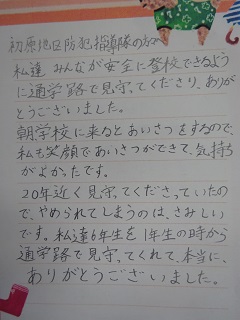 初原地区防犯指導隊の方へ
私達みんなが安全に登校できるよう
に通学路で見守ってくださり、ありが
とうございました。
朝学校に来るとあいさつをするので、
私も笑顔であいさつができて、気持ち
がよかったです。
20年近く見守ってくださっていたの
で、やめられてしまうのは、さみしい
です。私達6年生を1年生の時から
通学路で見守ってくれて、本当に、
ありがとうございました。